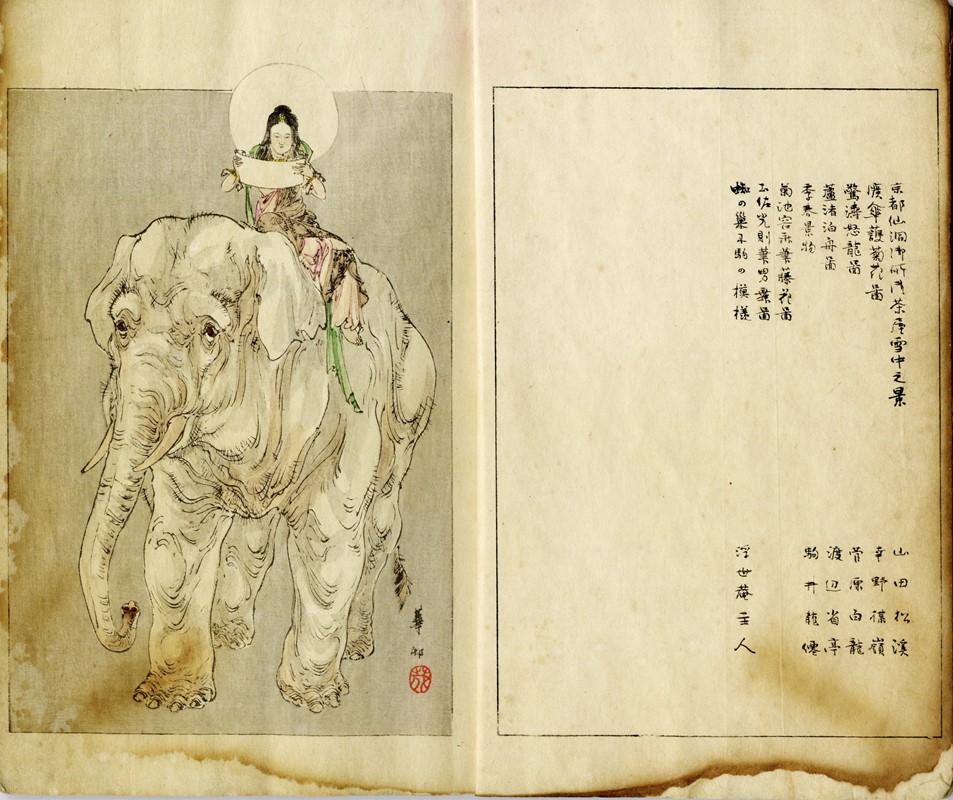 京都仙洞御所 茶屋雪中之景 山田松溪
傘護菊花啚 幸野楳嶺
驚濤怒龍啚 菅原白龍
蘆渚泊舟啚 渡辺省亭
季春景物 駒井龍僊
菊池容斎筆藤花啚
土佐光則筆男 啚
蜘の巣に駒の模様 浮世菴主人
華邨